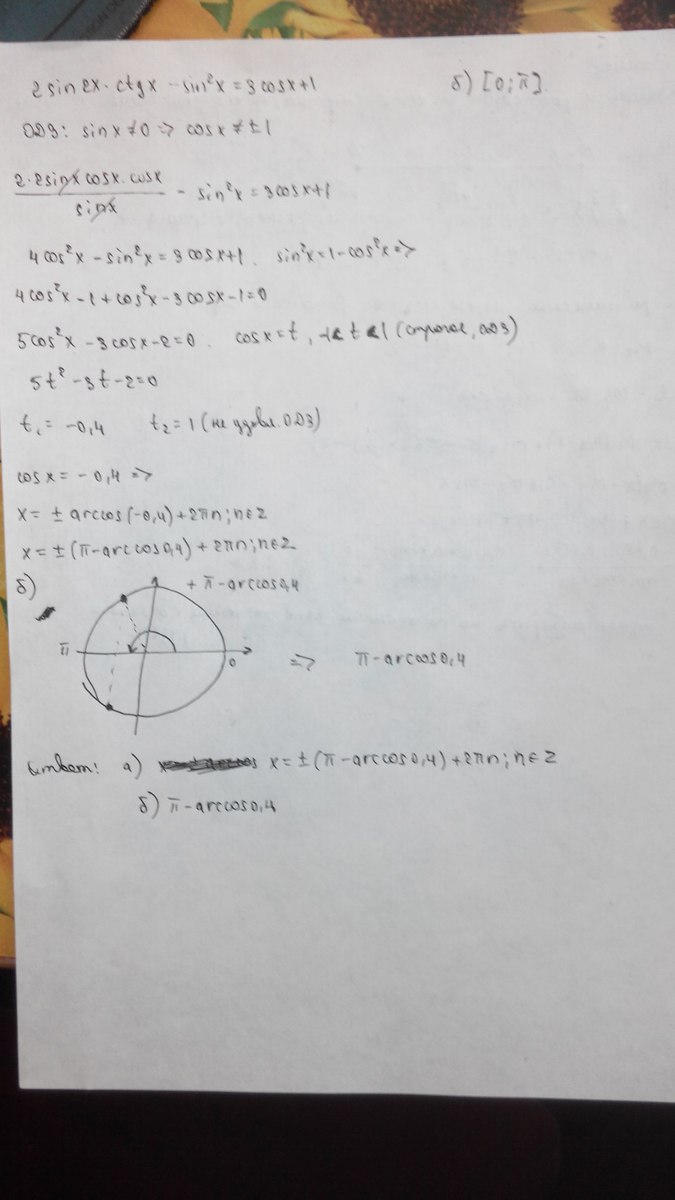 2 sin 2x · ctgx - sin²x = 3 cosx + 1 б) [0; π].
ОДЗ: sinx ≠ 0 => cosx ≠ ±1
2·2sinx cosx · cosx / sinx - sin²x = 3cosx+1
4cos²x - sin²x = 3cosx+1. sin²x = 1-cos²x =>
4cos²x - 1 + cos²x - 3cosx - 1 = 0
5cos²x - 3cosx - 2 = 0. cosx = t, -1< t <1 (строгое, ОДЗ)
5t² - 3t - 2 = 0
t₁ = -0,4 t₂ = 1 (не удовл. ОДЗ)
cosx = -0,4 =>
x = ± arccos(-0,4) + 2πn; n∈Z
x = ±(π - arccos0,4) + 2πn; n∈Z
б) + π - arccos0,4
π 0 => π - arccos0,4
Ответ: а) x = ±(π - arccos0,4) + 2πn; n∈Z
б) π - arccos0,4